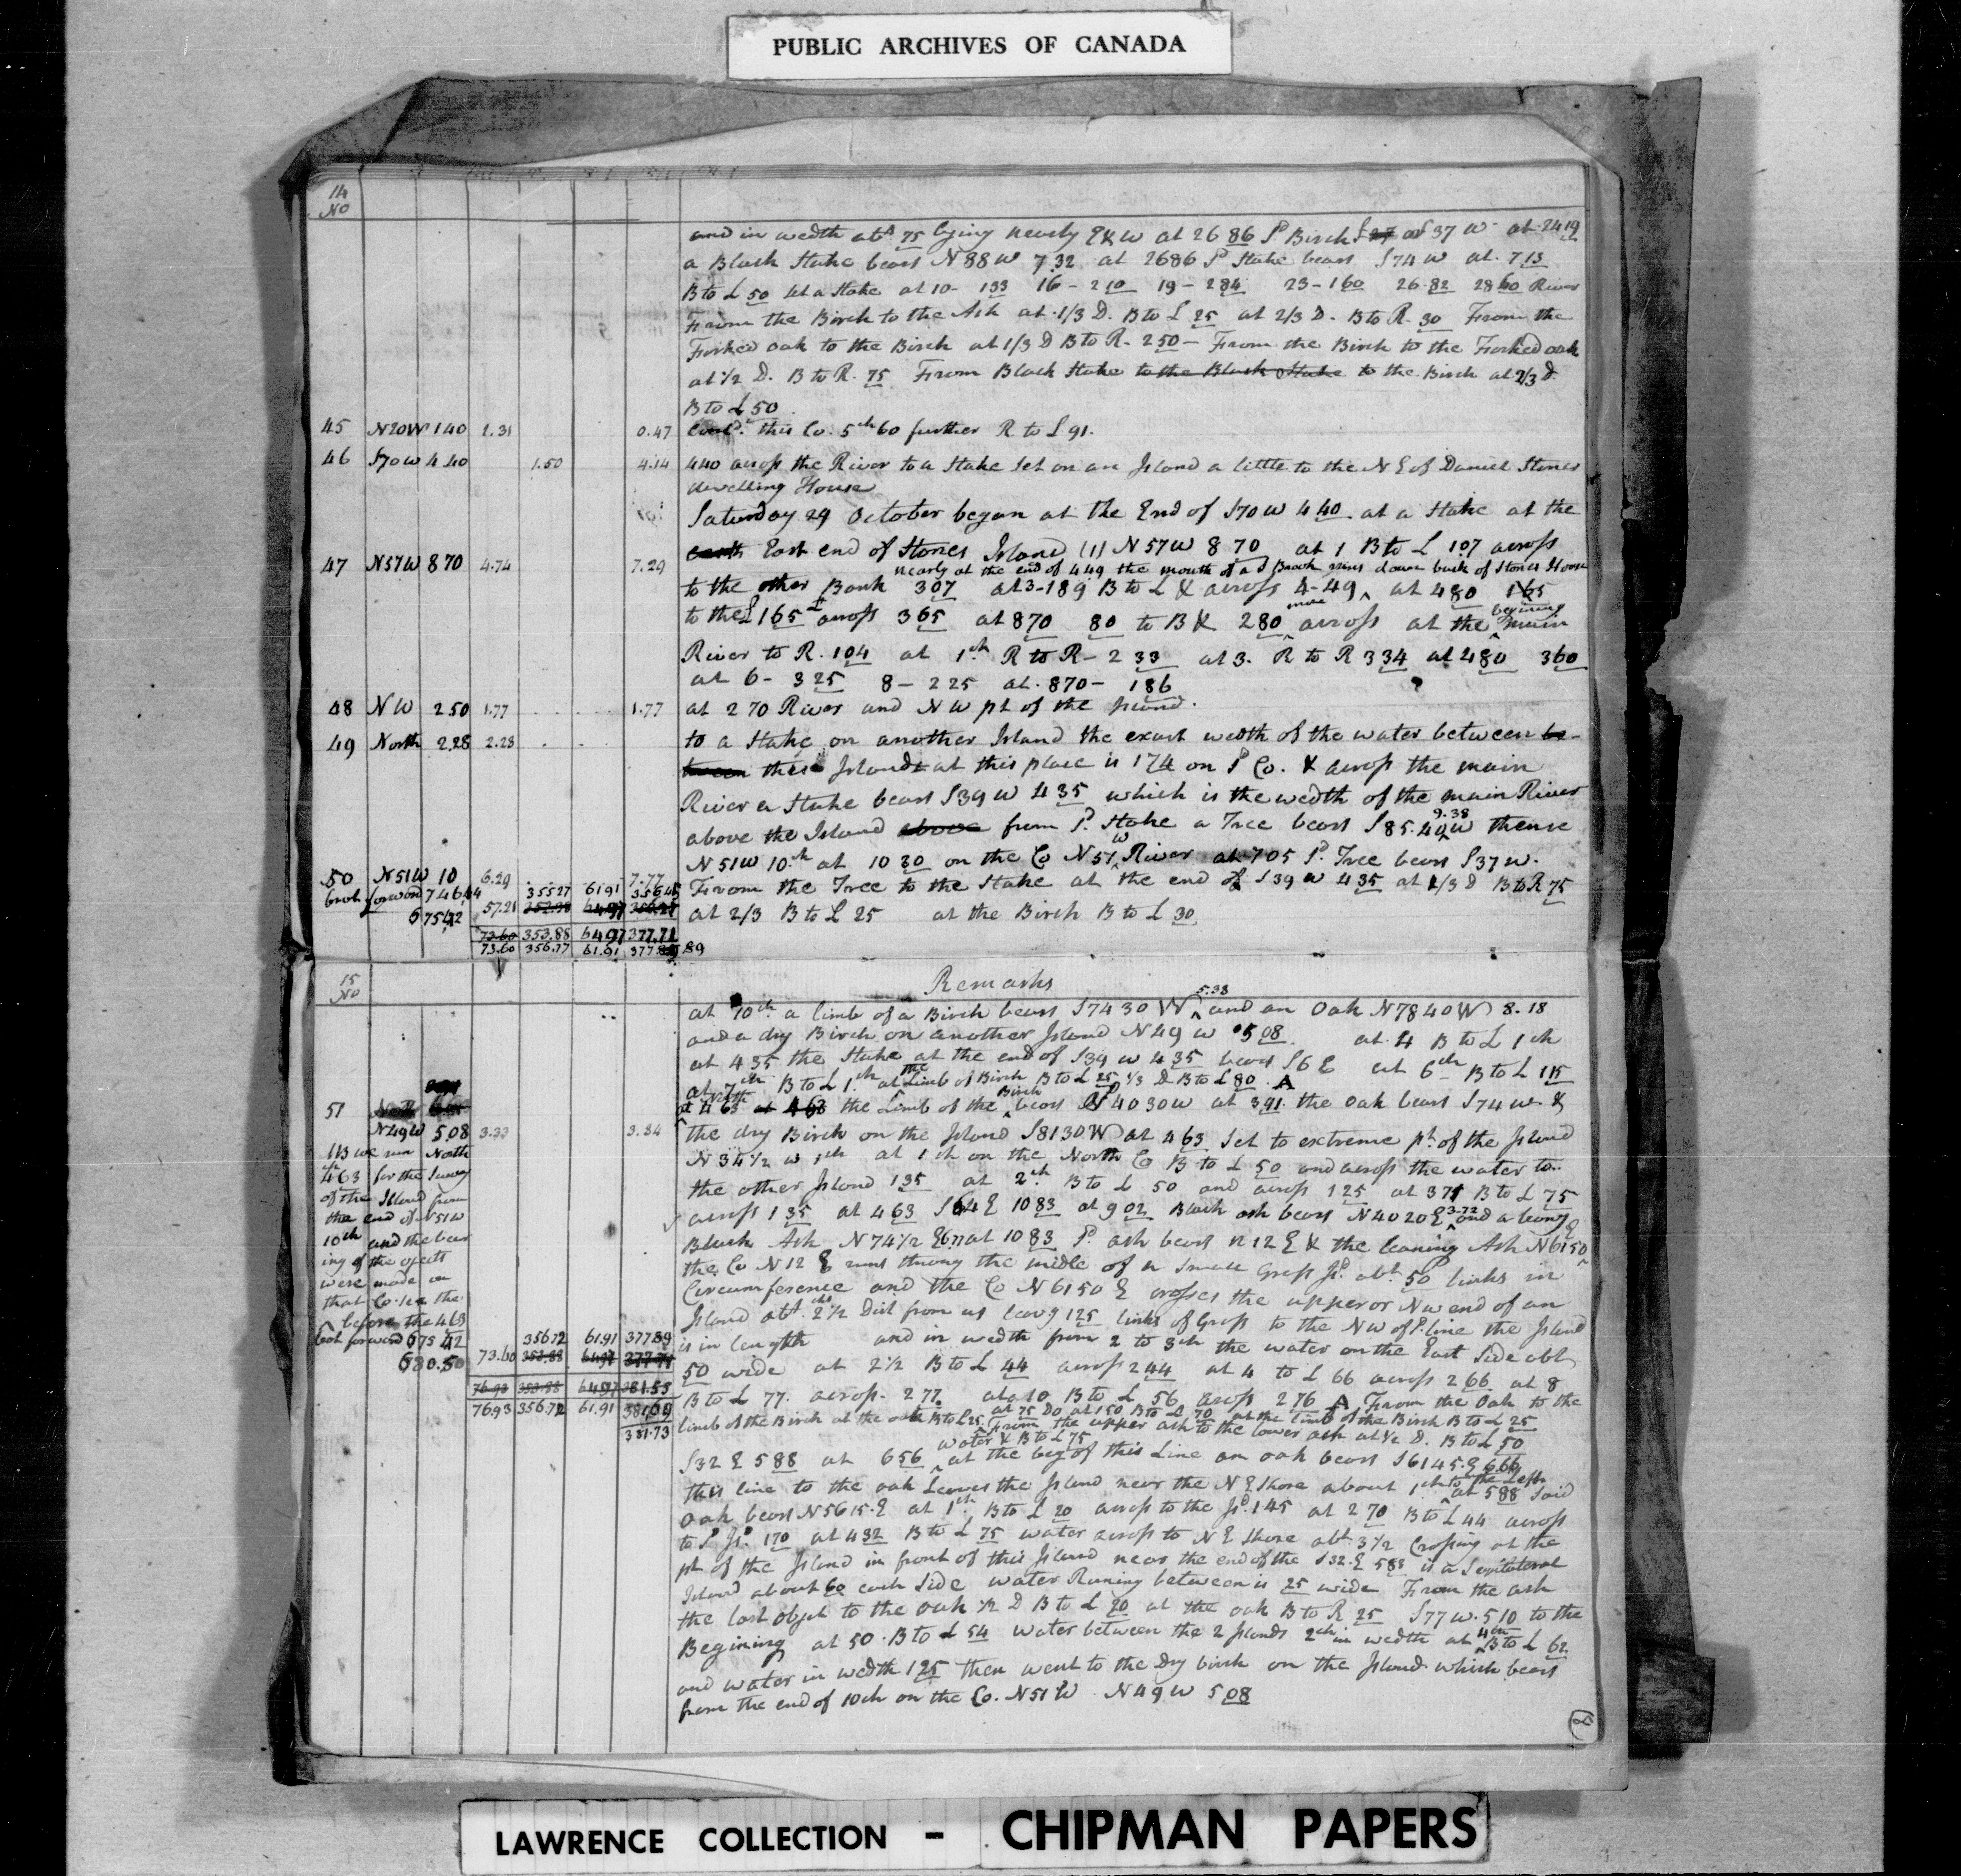 PUBLIC ARCHIVES OF CANADA
14
No
and in wedth abt 75 lying nearly E & W at 26 86 Sd Birch S 37 W at 2419
a Black Stake bears N 88 W 7.32 at 2686 Sd Stake bears S 74 W at 713
B to L 50 Set a Stake at 10- 133 16 - 210 19 - 284 23 - 160 26.82 2860 River
From the Birch to the Ash at 1/3 D. B to L 25 at 2/3 D. B to R. 30 From the
Forked oak to the Birch at 1/3 D B to R. 250 - From the Birch to the Forked oak
at 1/2 D. B to R. 75 From Black Stake to the Black Stake to the Birch at 2/3 D
B to L 50
45 N20W 140 1.31 0.47 Contd. this Co. 5ch 60 further R to L 91.
46 S70W 4 40 1.50 4.14 440 across the River to a Stake Set on an Island a little to the N E of Daniel Stones
dwelling House
Saturday 29 October began at the End of S70W 4 40 at a Stake at the
East end of Stones Island (1) N 57W 8 70 at 1 B to L 107 across
47 N57W 870 4.74 7.29
nearly at the end of 449 the mouth of a S Brook runs down back of Stones House
to the other Bank 307 at 3-189 B to L & across 4-49 at 480 165
to the L 165 across 365 at 870 80 to B & 280 more across at the begining main
River to R. 104 at 1ch R to R - 2 33 at 3. R to R 334 at 480 360
at 6 - 325 8 - 225 at 870 - 186
48 NW 250 1.77 1.77 at 270 River and NW pt of the Island.
49 North 2.28 2.28 to a Stake on another Island the exact wedth of the water between be-
tween these Islands at this place is 174 on Sd Co. & across the main
River a Stake bears S39W 435 which is the wedth of the main River
above the Island above from Sd. Stake a Tree bears S 85.40W 9.38 thence
N 51W 10ch at 10 30 on the Co N 51 W River at 705 Sd. Tree bears S37W.
50 N51W 10 6.29 7.77
From the Tree to the Stake at the end of S39W 435 at 1/3 D B to R 75
brot forward 746,44 355.27 61.91 356.45
675,42 57.21
at 2/3 B to L 25 at the Birch B to L 30
73.60 353.88 64.97 377.71
73.60 356.77 61.91 377.89
15
No
Remarks
at 10ch a limb of a Birch bears S74 30 W 5.38 and an Oak N78 40W 8.18
and a dry Birch on another Island N49W 508 at 4 B to L 1ch
at 435 the Stake at the end of S39W 435 bears S6E at 6ch B to L 115
at 7ch B to L 1ch at the Limb of Birch B to L 25 1/3 D B to L 80. A
51
at 463 the Limb of the Birch bears S 40 30W at 391 the Oak bears S74W &
N49W 508 3.33 3.84
the dry Birch on the Island S81 30W at 463 Set to extreme pt. of the Island
N 34 1/2 W 1ch at 1ch on the North Co B to L 50 and across the water to
the other Island 135 at 2ch B to L 50 and across 125 at 371 B to L 75
across 1 35 at 463 S 64 E 10 83 at 9 02 Black ash bears N40 20E 3.72 and a leaning
Black Ash N74 1/2 E at 10 83 Sd. ash bears N 12 E & the leaning Ash N61 50 E
the Co N 12 E runs throug the midle of a Small Grass Isd. abt 50 links in
Circumference and the Co N 61 50 E crosses the upper or NW end of an
Island abt 2 1/2 chs Dist from us leavg 125 links of Grass to the NW of Sd. line the Island
is in length and in wedth from 2 to 3ch the water on the East Side abt
50 wide at 2 1/2 B to L 44 across 244 at 4 to L 66 across 266 at 8
B to L 77. across 277. at 10 B to L 56 across 276 A From the Oak to the
limb of the Birch at the oak B to L 25 at 75 Do at 150 B to L 70 at the limb of the Birch B to L 25
From the upper ash to the lower ash at 1/2 D. B to L 50
S32E 588 at 656 water & B to L 75 at the beg of this Line an oak bears S61 45.E 6.66
this line to the oak Leaves the Island near the N E Shore about 1ch to the Left at 588 Said
Oak bears N56 15.E at 1ch B to L 20 across to the Isd. 145 at 270 B to L 44 across
to Sd Isd. 170 at 432 B to L 75 water across to N E Shore abt 3 1/2 Crossing at the
pt of the Island in front of this Island near the end of the S32.E 588 is a Eqilateral
Island about 60 each Side water Runing between is 25 wide From the ash
the last object to the oak 1/2 D B to L 20 at the oak B to R 25 S77W.510 to the
Begining at 50. B to L 54 water between the 2 Islands 2ch in wedth at 4ch B to L 62
and water in wedth 125 then went to the Dry birch on the Island which bears
from the end of 10ch on the Co. N51W N49W 508
113 we run North
463 for the Survey
of the Island from
the end of N51W
10ch and the bear
ing of the objects
were made on
that Co. see the
before the 463
brot forward 675 42 356.72 61.91 377.89
680.50 73.60 353.88 64.97 377.71
76.93 353.88 64.97 381.55
76.93 356.72 61.91 381.69
381.73
LAWRENCE COLLECTION - CHIPMAN PAPERS